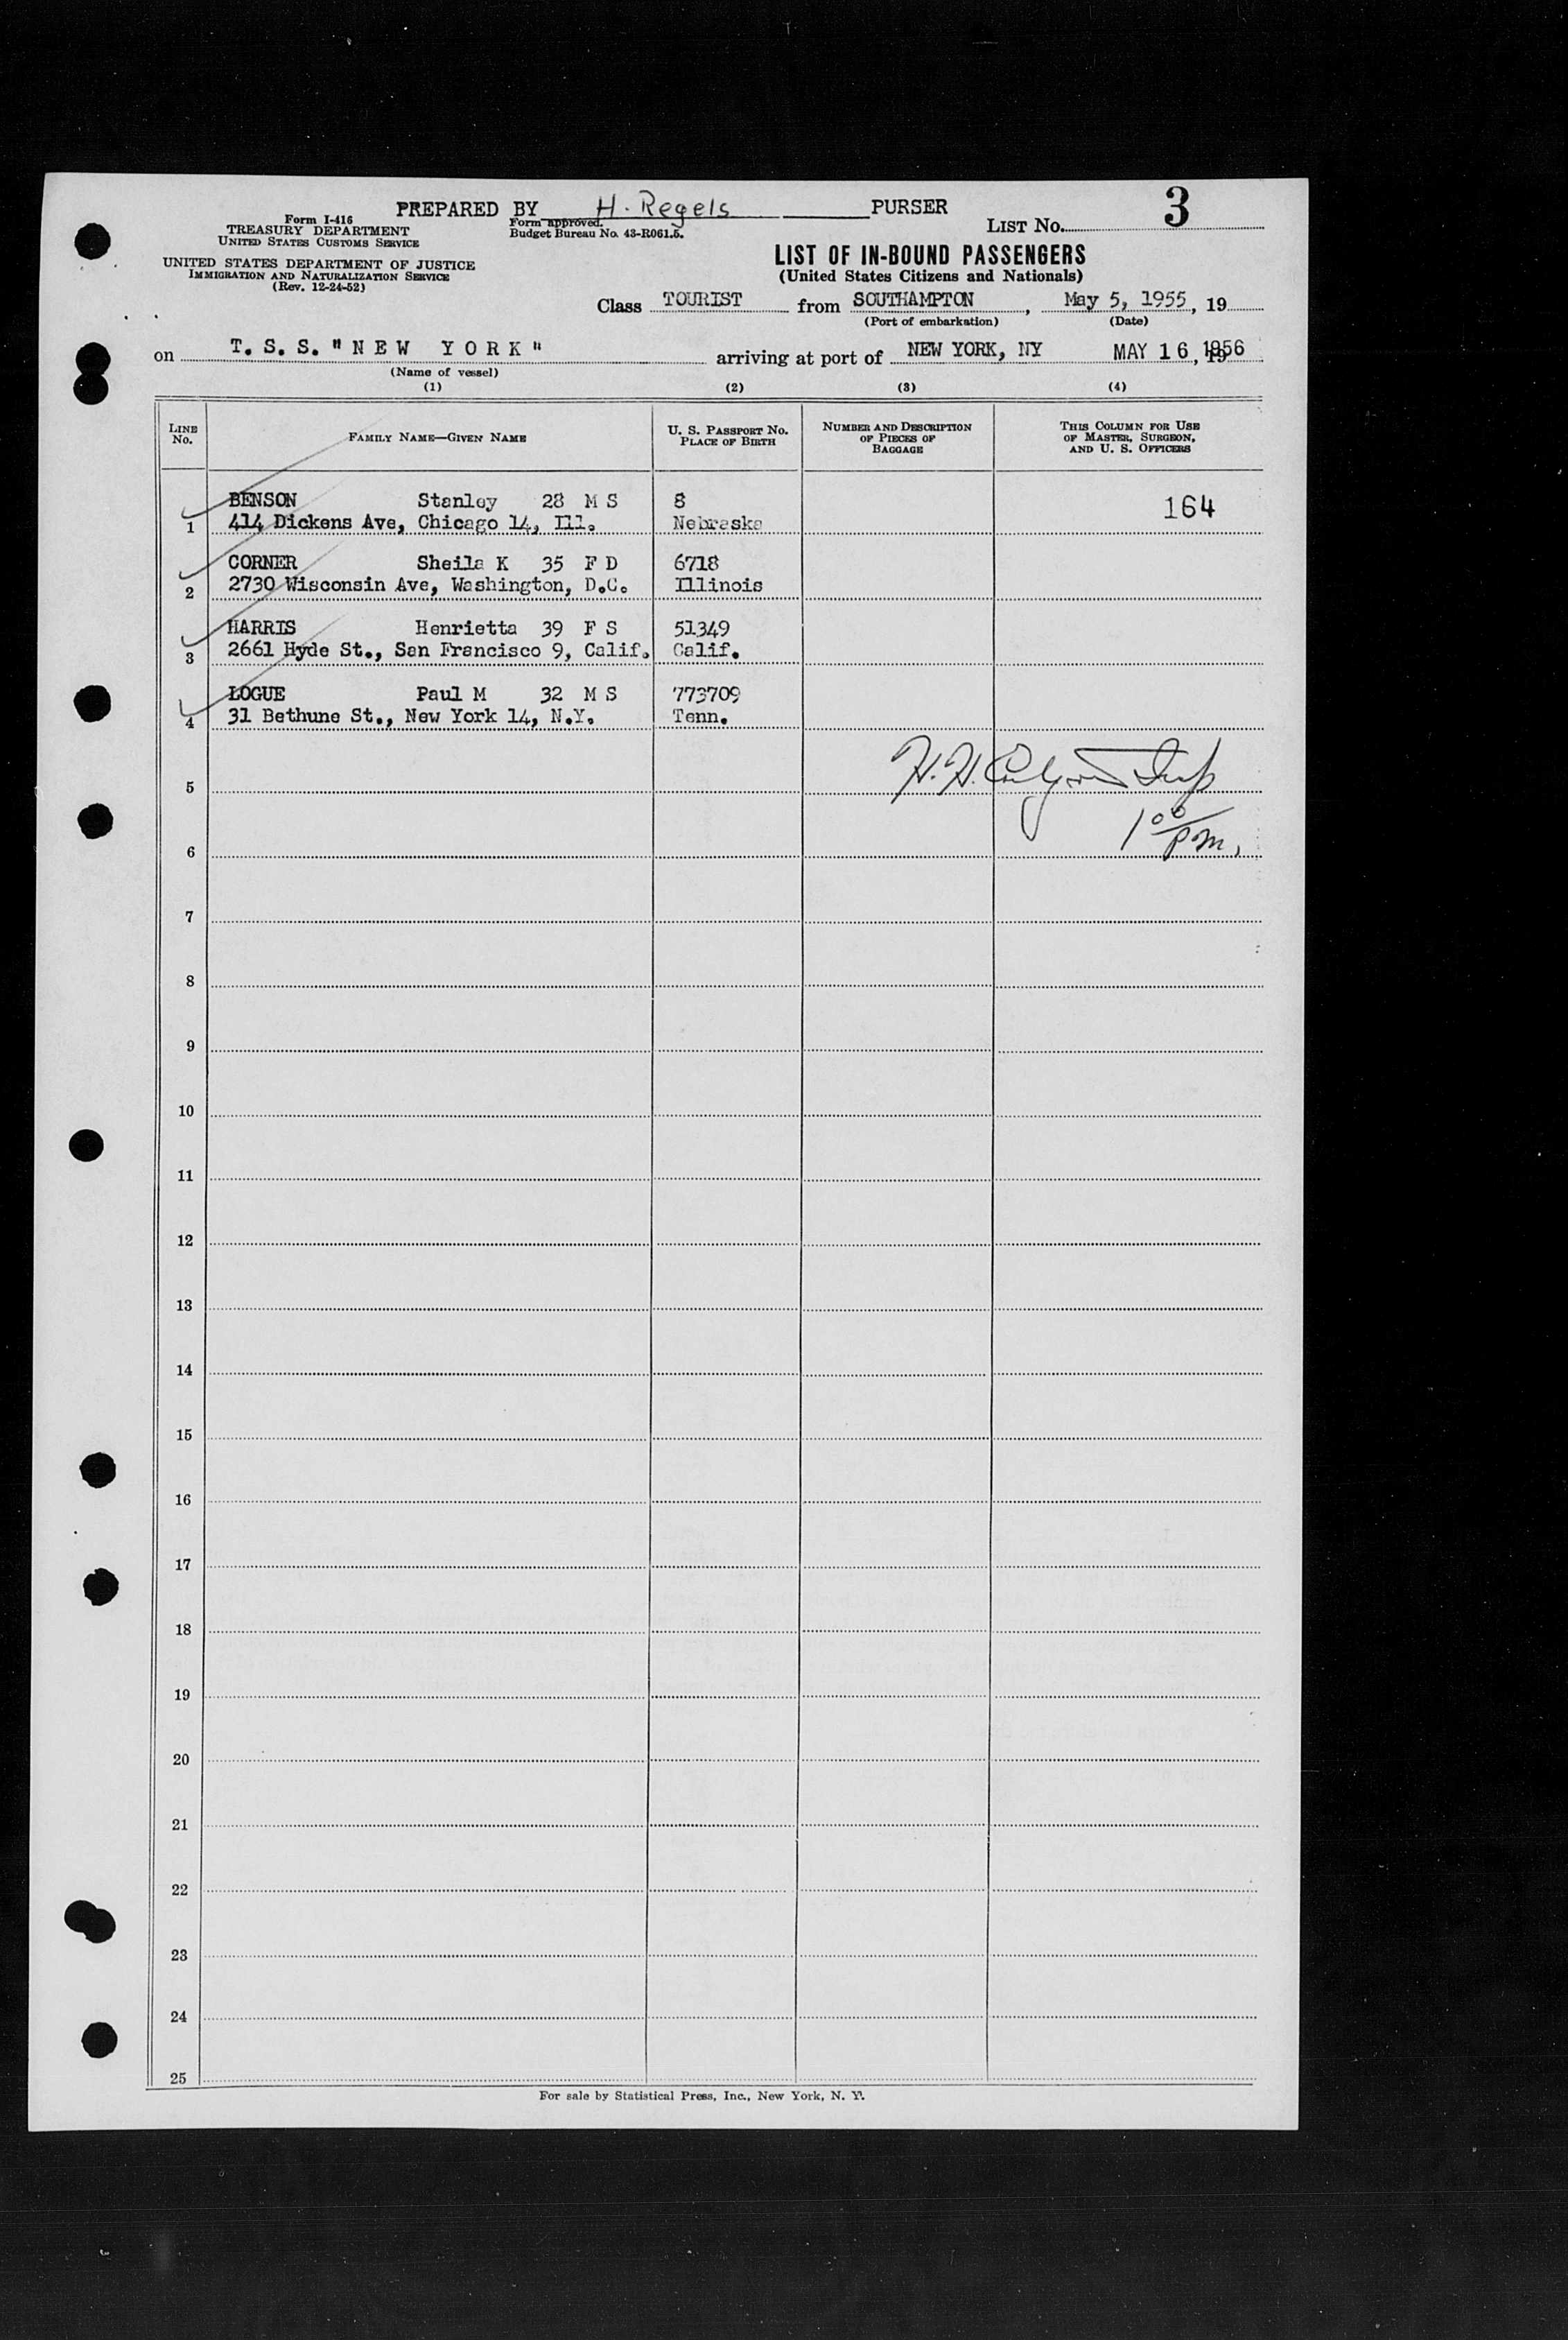 PREPARED BY H. Regels PURSER
Form I-416
TREASURY DEPARTMENT
UNITED STATES CUSTOMS SERVICE
UNITED STATES DEPARTMENT OF JUSTICE
IMMIGRATION AND NATURALIZATION SERVICE
(Rev. 12-24-52)
Form approved.
Budget Bureau No. 43-R061.5.
LIST No. 3
LIST OF IN-BOUND PASSENGERS
(United States Citizens and Nationals)
Class TOURIST from SOUTHAMPTON, May 5, 1955, 19
(Port of embarkation) (Date)
on T. S. S. "NEW YORK" arriving at port of NEW YORK, NY MAY 16, 1956
(Name of vessel)
(1) (2) (3) (4)
LINE No. FAMILY NAME—GIVEN NAME U. S. PASSPORT No. PLACE OF BIRTH NUMBER AND DESCRIPTION OF PIECES OF BAGGAGE THIS COLUMN FOR USE OF MASTER, SURGEON, AND U. S. OFFICERS
BENSON Stanley 28 M S 8 164
1 414 Dickens Ave, Chicago 14, Ill. Nebraska
CORNER Sheila K 35 F D 6718
2 2730 Wisconsin Ave, Washington, D.C. Illinois
HARRIS Henrietta 39 F S 51349
3 2661 Hyde St., San Francisco 9, Calif. Calif.
LOGUE Paul M 32 M S 773709
4 31 Bethune St., New York 14, N.Y. Tenn.
H. H.
5
1 00 P.M.
6
7
8
9
10
11
12
13
14
15
16
17
18
19
20
21
22
23
24
25
For sale by Statistical Press, Inc., New York, N. Y.